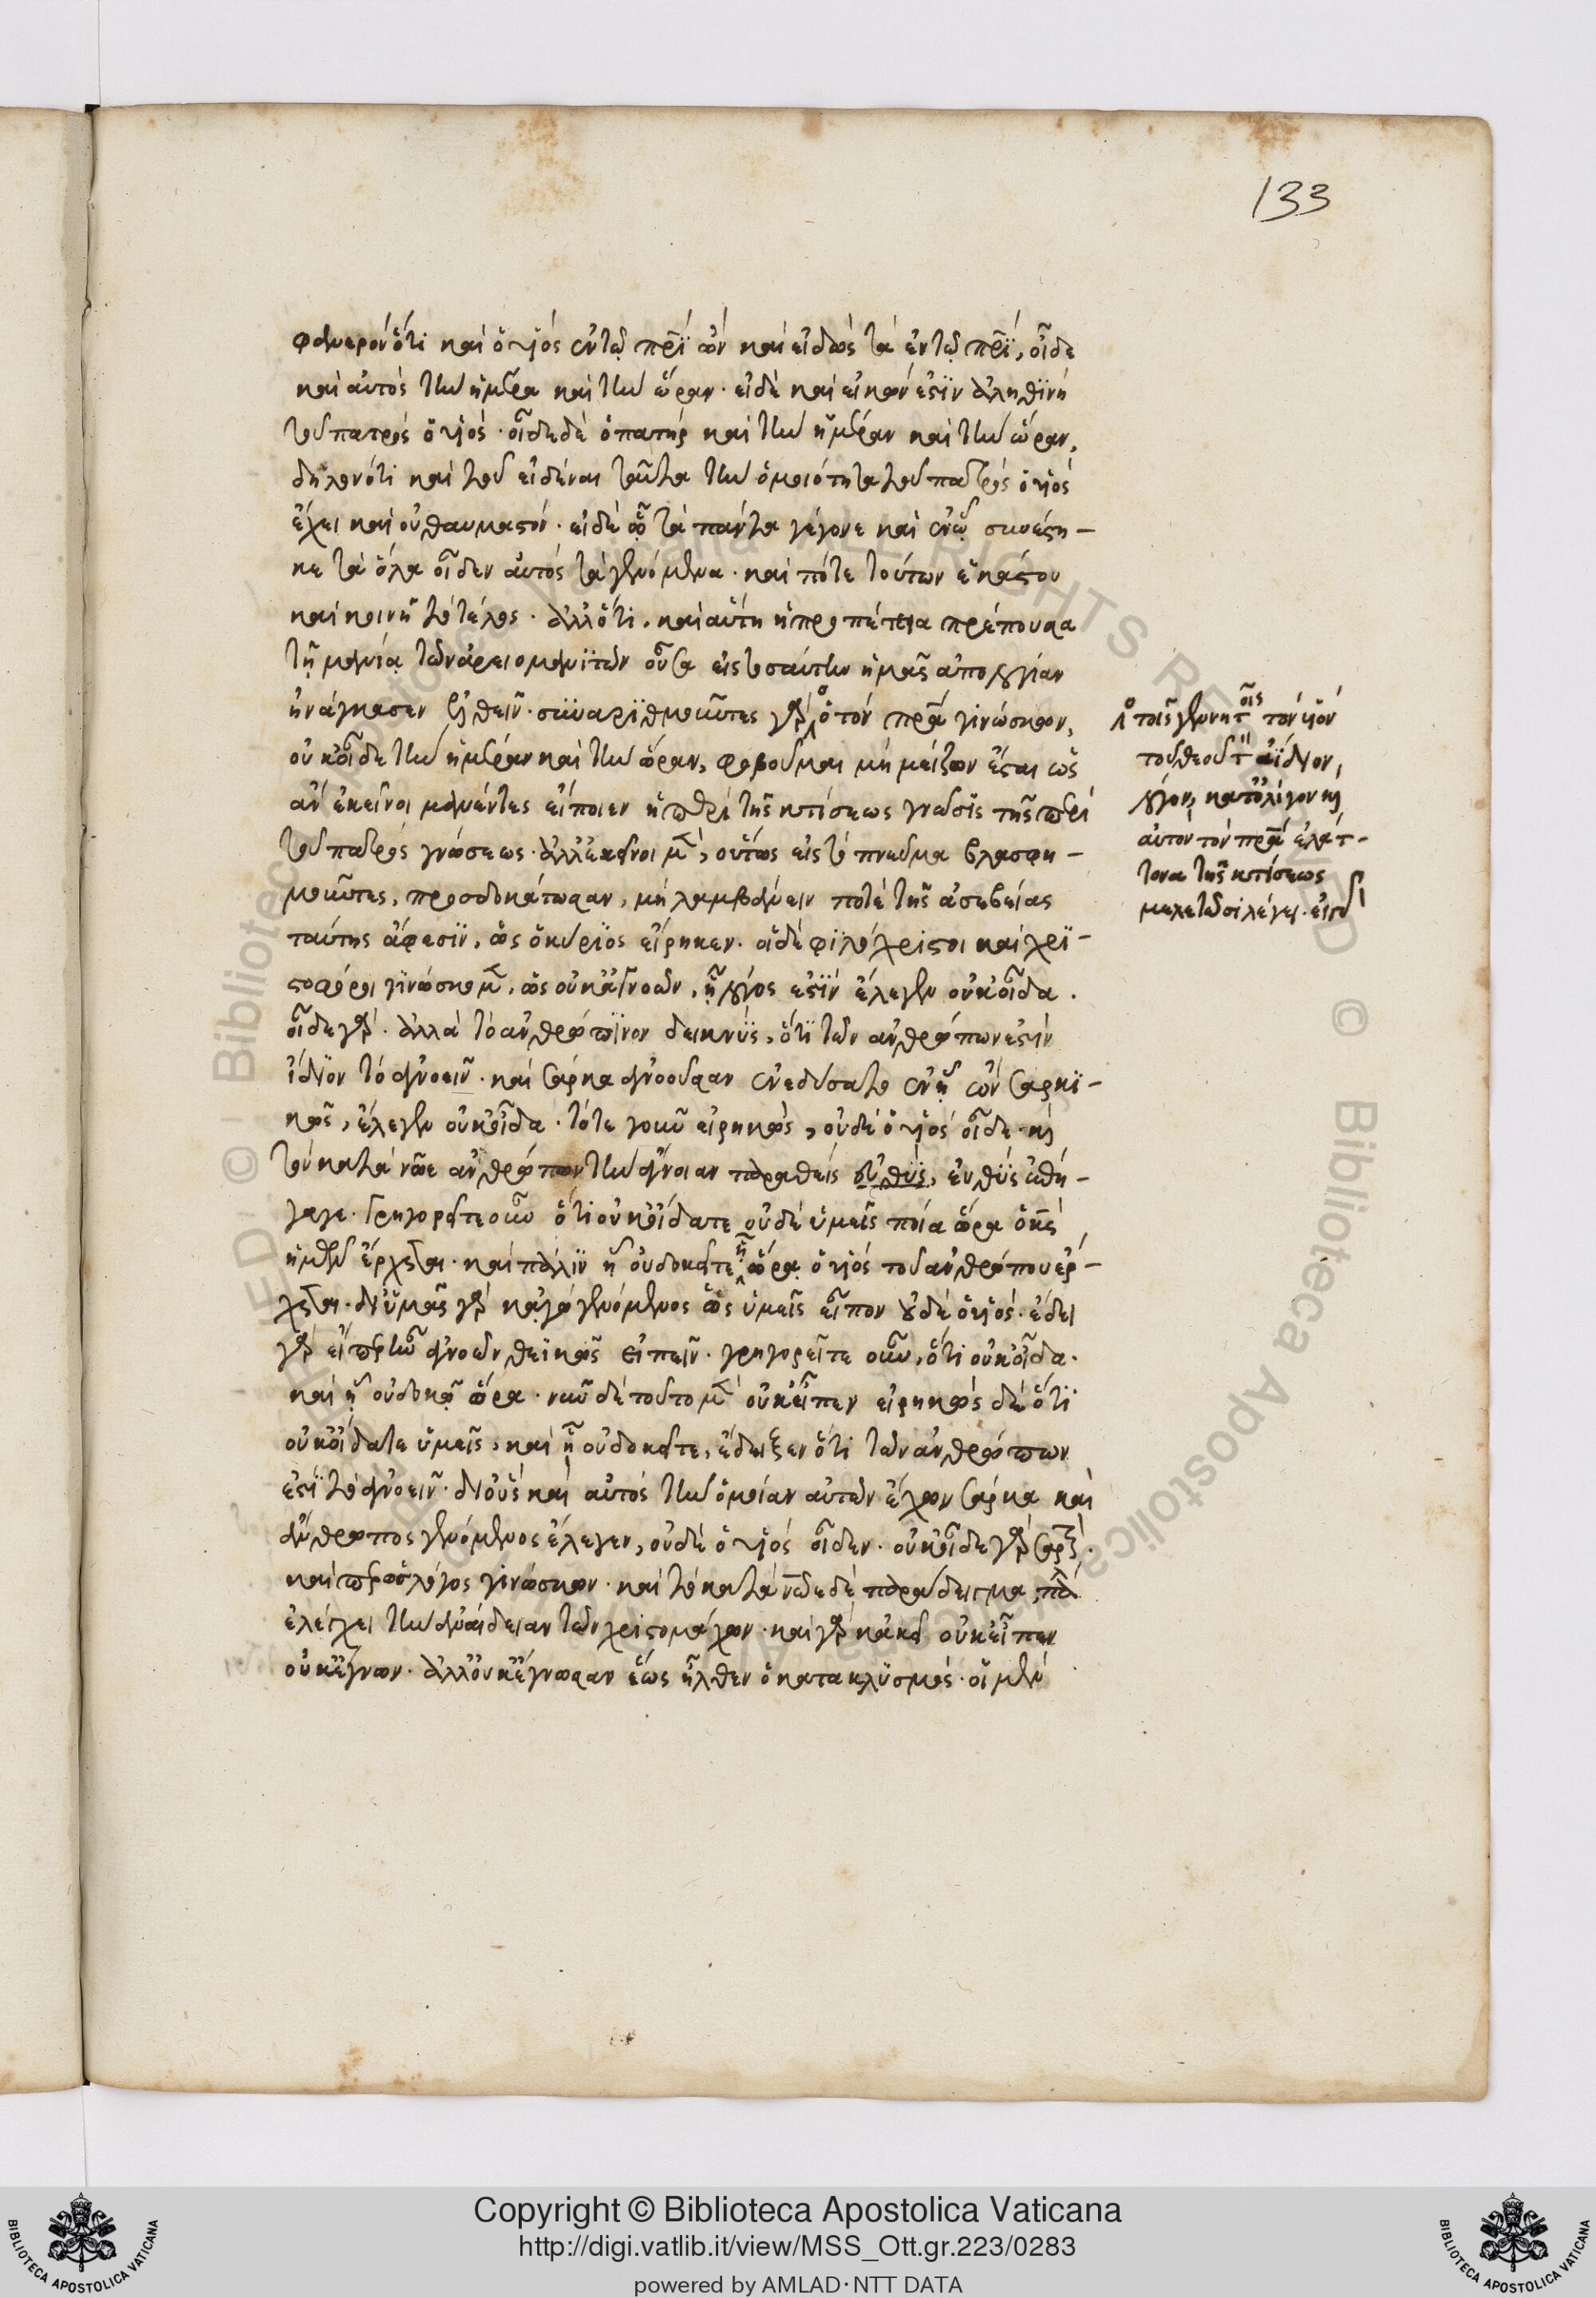 133
φανερόν ὅτι καὶ ὁ υἱός ἐν τῷ πρϊ ὤν καὶ εἰδώς τὰ ἐν τῷ πρϊ, οἶδε
καὶ αὐτός τὴν ἡμέρα καὶ τὴν ὥραν. εἰ δὲ καὶ εἰκών ἐστϊν ἀληθϊνὴ
τοῦ πατρός ὁ υἱός. οἶδε δὲ ὁ πατήρ καὶ τὴν ἡμέραν καὶ τὴν ὥραν,
δηλονότι καὶ τοῦ εἰδέναι ταῦτα τὴν ὁμοιότητα τοῦ πατρός ὁ υἱός
ἔχει καὶ οὐ θαυμαστόν. εἰ δὲ τὰ πάντα γέγονε καὶ ἐν ᾧ συνέστη-
κε τὰ ὅλα οἶδεν αὐτός τὰ γενόμενα. καὶ πότε τούτων ἑκάστου
καὶ κοινῇ τό τέλος. ἀλλ' ὅτι, καὶ αὕτη ἡ προπέτεια πρέπουσα
τῇ μανίᾳ τῶν ἀρειομανϊτῶν οὖσα εἰς τοσαύτην ἡμᾶς ἀπολογίαν
ἠνάγκασεν ἐλθεῖν. συναρϊθμοῦντες γὰρ ὁ τόν πρα γινώσκων,
οὐκ οἶδε τὴν ἡμέραν καὶ τὴν ὥραν, φοβοῦμαι μὴ μείζων ἔσται ὡς
ἄν ἐκεῖνοι μανέντες εἴποιεν ἡ περὶ τῆς κτίσεως γνῶσις τῆς περὶ
τοῦ πατρός γνώσεως. ἀλλ' ἐκεῖνοι μ, οὕτως εἰς τὸ πνεῦμα βλασφη-
μοῦντες, προσδοκάτωσαν, μὴ λαμβάνειν ποτέ τῆς ἀσεβείας
ταύτης ἄφεσϊν, ὡς ὁ κύρϊος εἴρηκεν. οἱ δὲ φϊλόχριστοι καὶ χρϊ-
στοφόροι γϊνώσκομ, ὡς οὐκ ἀγνοῶν, ᾗ λόγος ἐστϊν ἔλεγεν οὐκ οἶδα.
οἶδε γὰρ. ἀλλὰ τὸ ἀνθρώπϊνον δεικνὺς, ὅτϊ τῶν ἀνθρώπων ἐστὶν
ἴδϊον τό ἀγνοεῖν. καὶ σάρκα ἀγνοοῦσαν ἐνεδύσατο ἐν ᾗ ὤν σαρκϊ-
κῶς, ἔλεγεν οὐκ οἶδα. τότε γοῦν εἰρηκώς, οὐδέ ὁ υἱός οἶδε κ
τῶν κατὰ νῶε ἀνθρώπων τὴν ἄγνοιαν παραθείς εὐθύς, εὐθύς ἐπή-
γαγε. Γρηγορεῖτε οὖν ὅτι οὐκ οἴδατε οὐδέ ὑμεῖς ποία ὥρα ὁ κς
ἡμῶν ἔρχεται. καὶ πάλϊν ᾗ οὐ δοκεῖτε ὥρᾳ ὁ υἱός τοῦ ἀνθρώπου ἔρ-
χεται. δι' ὑμᾶς γὰρ κἀγώ γενόμενος ὡς ὑμεῖς εἶπον οὐδέ ὁ υἱός. ἔδει
γὰρ εἴπερ ἦν ἀγνοῶν θεϊκῶς εἰπεῖν. γρηγορεῖτε οὖν, ὅτι οὐκ οἶδα.
καὶ ᾗ οὐ δοκῶ ὥρα. νῦν δὲ τοῦτο μ οὐκ εἶπεν εἰρηκώς δὲ ὅτϊ
οὐκ οἴδατε ὑμεῖς, καὶ ᾗ οὐ δοκεῖτε, ἔδειξεν ὅτι τῶν ἀνθρώπων
ἐστϊ τό ἀγνοεῖν. δι' οὕς καὶ αὐτός τὴν ὁμοίαν αὐτῶν ἔχων σάρκα καὶ
ἄνθρωπος γενόμενος ἔλεγεν, οὐδέ ὁ υἱός οἶδεν. οὐκ οἶδε γὰρ σαρξ.
καίπερ ὡς λόγος γινώσκων. καὶ τό κατὰ νῶε δὲ παράδειγμα, παλ
ἐλέγχει τὴν ἀναίδειαν τῶν χριστομάχων. καὶ γὰρ κἀκεῖ οὐκ εἶπεν
οὐκ ἔγνων. ἀλλ' οὐκ ἔγνωσαν ἕως ἦλθεν ὁ κατακλυσμός. οἱ μὲν
τοῖς γενητοῖς τόν υἱόν
τοῦ θεοῦ τ ἀΐδιον,
λόγον, κατ' ὀλίγον κ
αὐτόν τόν πρα ἐλάτ-
τονα τῆς κτίσεως
μελετῶσι λέγει. εἰ γὰρ
Copyright © Biblioteca Apostolica Vaticana
http://digi.vatlib.it/view/MSS_Ott.gr.223/0283
powered by AMLAD·NTT DATA
BIBLIOTECA APOSTOLICA VATICANA
BIBLIOTECA APOSTOLICA VATICANA